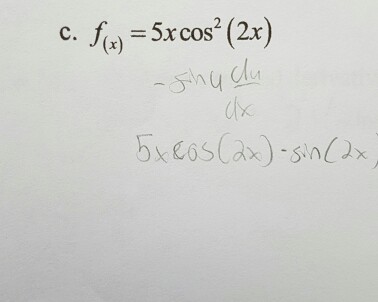 c. f(x) = 5x cos² (2x)
-sin u du
dx
5x cos(2x) - sin(2x)